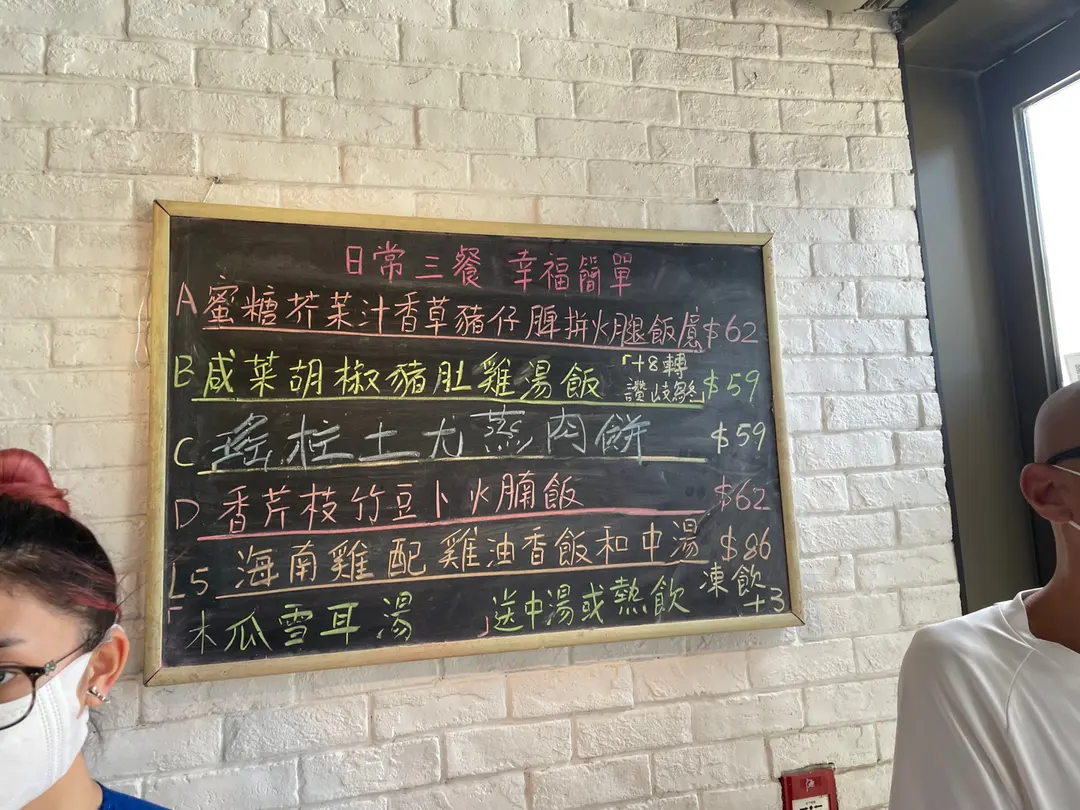 日常三餐 幸福簡單
A 蜜糖芥茉汁香草豬仔脾拼火腿飯 $62
B 咸菜胡椒豬肚雞湯飯 「+8轉 讚岐」 $59
C 瑤柱土尤蒸肉餅 $59
D 香芹枝竹豆卜火腩飯 $62
L5 海南雞配雞油香飯和中湯 $86
木瓜雪耳湯 送中湯或熱飲 凍飲 +3